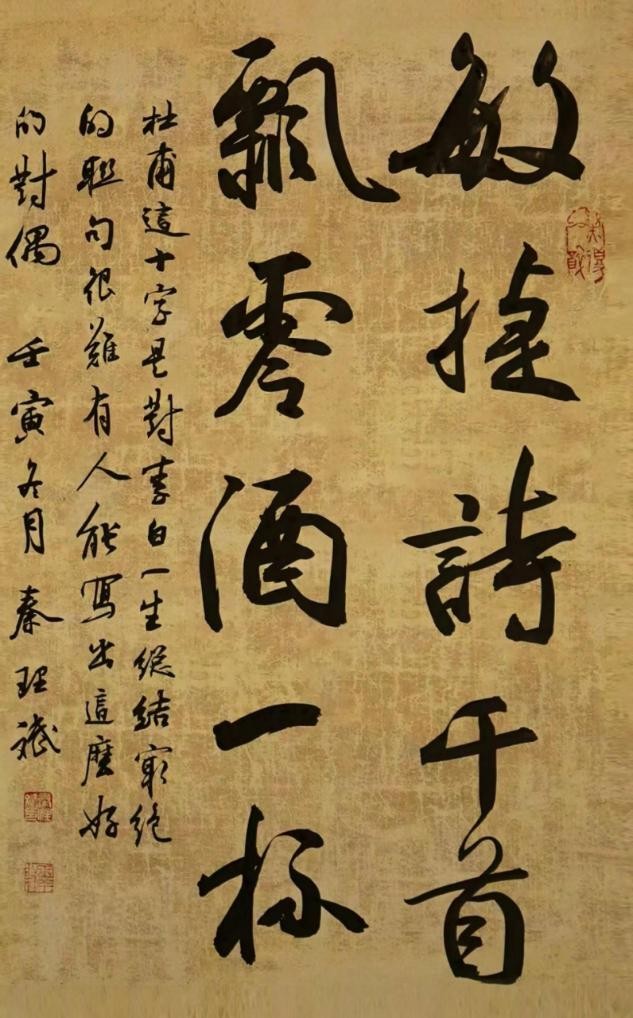 敏捷詩千首
飄零酒一杯
杜甫這十字是對李白一生總結窮絶
的聯句很難有人能寫出這麼好
的對偶 壬寅冬月 秦理斌